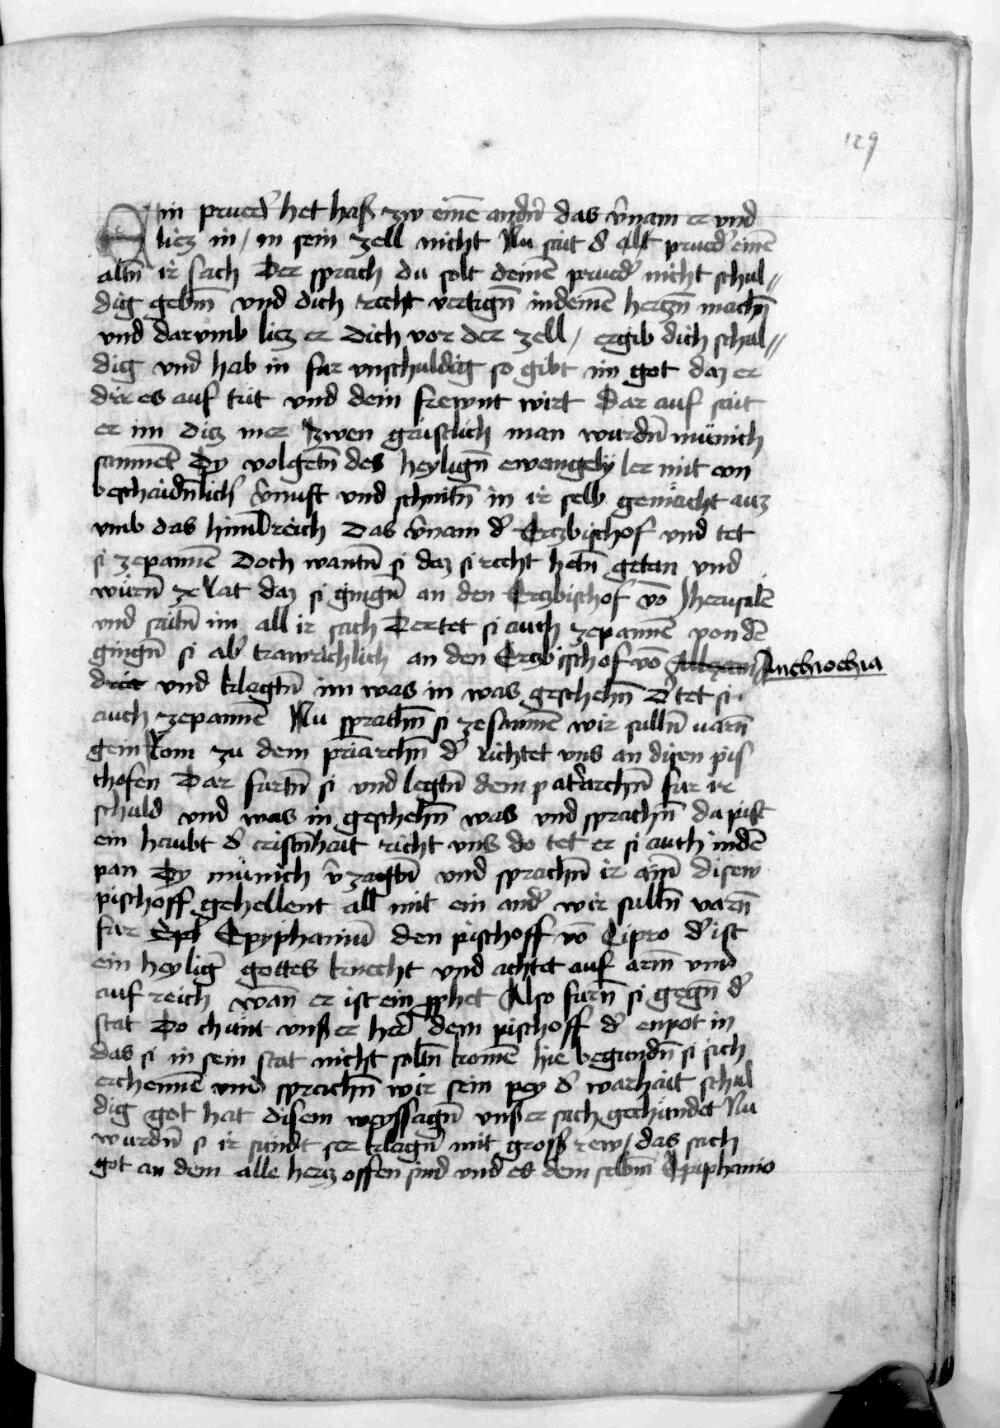 129
Ain prued' het haß zw eine͞ andn̄ das v̂nam er vnd
liez in / in sein zell nicht Nu sait d' alt prued' eine͞
altn̄ ir sach Der sprach du solt deine͞ prued' nicht schul//
dig gebn̄ vnd dich recht vertign̄ in deine͞ herczn̄ machn̄
vnd darvmb liez er dich vor der zell / ergib dich schul//
dig vnd hab in fur vnschuldig so gibt im got daz er
dir es auf tut vnd dein frewnt wirt Dar auf sait
er im diz mer Zwen geistlich man wurdn̄ münich
samme͞t Dy volgetn̄ des heylign̄ ewangely ler mit vn
beschaidn̄lich' v̂nuft vnd schnitn̄ in ir selb gemächt auz
vmb das himelreich Das v̂nam d' Erczbischof vnd tet
si ze panne͞ Doch wantn̄ si daz si recht hetn̄ getan vnd
wurn̄ ze rat daz si gingn̄ an den Erczbischof vo͞ Jherusale͞
vnd saitn̄ im all ir sach Der tet si auch ze panne͞ von de͞
gingn̄ si ab' trawrichlich an den Erczbischof vo͞ Anthiochia
vnd klagtn̄ im was in was geschehn̄ D' tet si
auch ze panne͞ Nu sprachn̄ si ze samme͞ wir sulln̄ varn̄
gein Rom zu dem p͞riarchn̄ d' richtet vns an disen pis
chofen Dar furtn̄ si vnd legtn̄ dem patr̂archn̄ fur ir
schuld vnd was in geschehn̄ was vnd sprachn̄ da pist
ein haubt d' cristn̄hait richt vns do tet er si auch in de͞
pan Dy münich v̂zagtn̄ vnd sprachn̄ ir aim disew
pischoff gehellent all mit ein and' wir sulln̄ varn̄
fur Epyphaniu͞ den pischoff vo͞ Cipro d' ist
ein heylig' gottes knecht vnd achtet auf arm̄ vnd
auf reich wan̄ er ist ein p͞phet Also furn̄ si gegn̄ d'
stat Do chünt vnser her' dem pischoff d' enpot in
das si in sein stat nicht soltn̄ kome͞ hie begundn̄ si sich
erchenne͞ vnd sprachn̄ wir sein pey d' warhait schul
dig got hat disem weyssagn̄ vnser sach gechündet Nu
wurdn̄ si ir sündt ser klagn̄ mit grosser rew / das sach
got an dem alle hercz offen sind vnd es dem selbn̄ Epiphanio